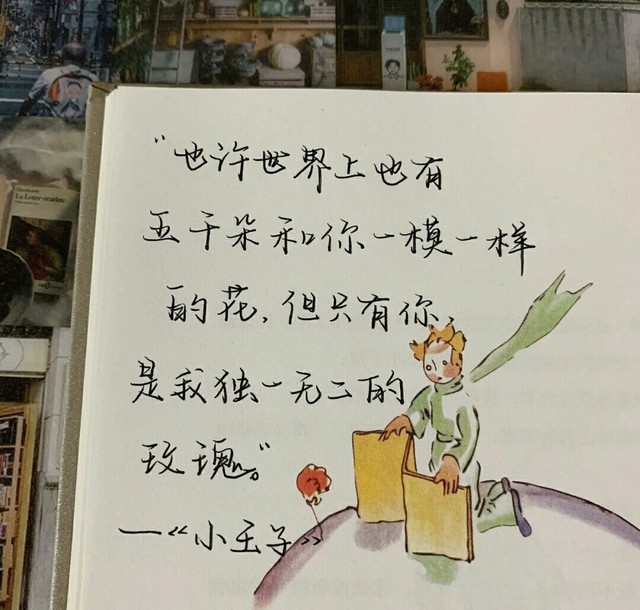 “也许世界上也有
五千朵和你一模一样
的花，但只有你，
是我独一无二的
玫瑰。”
—《小王子》